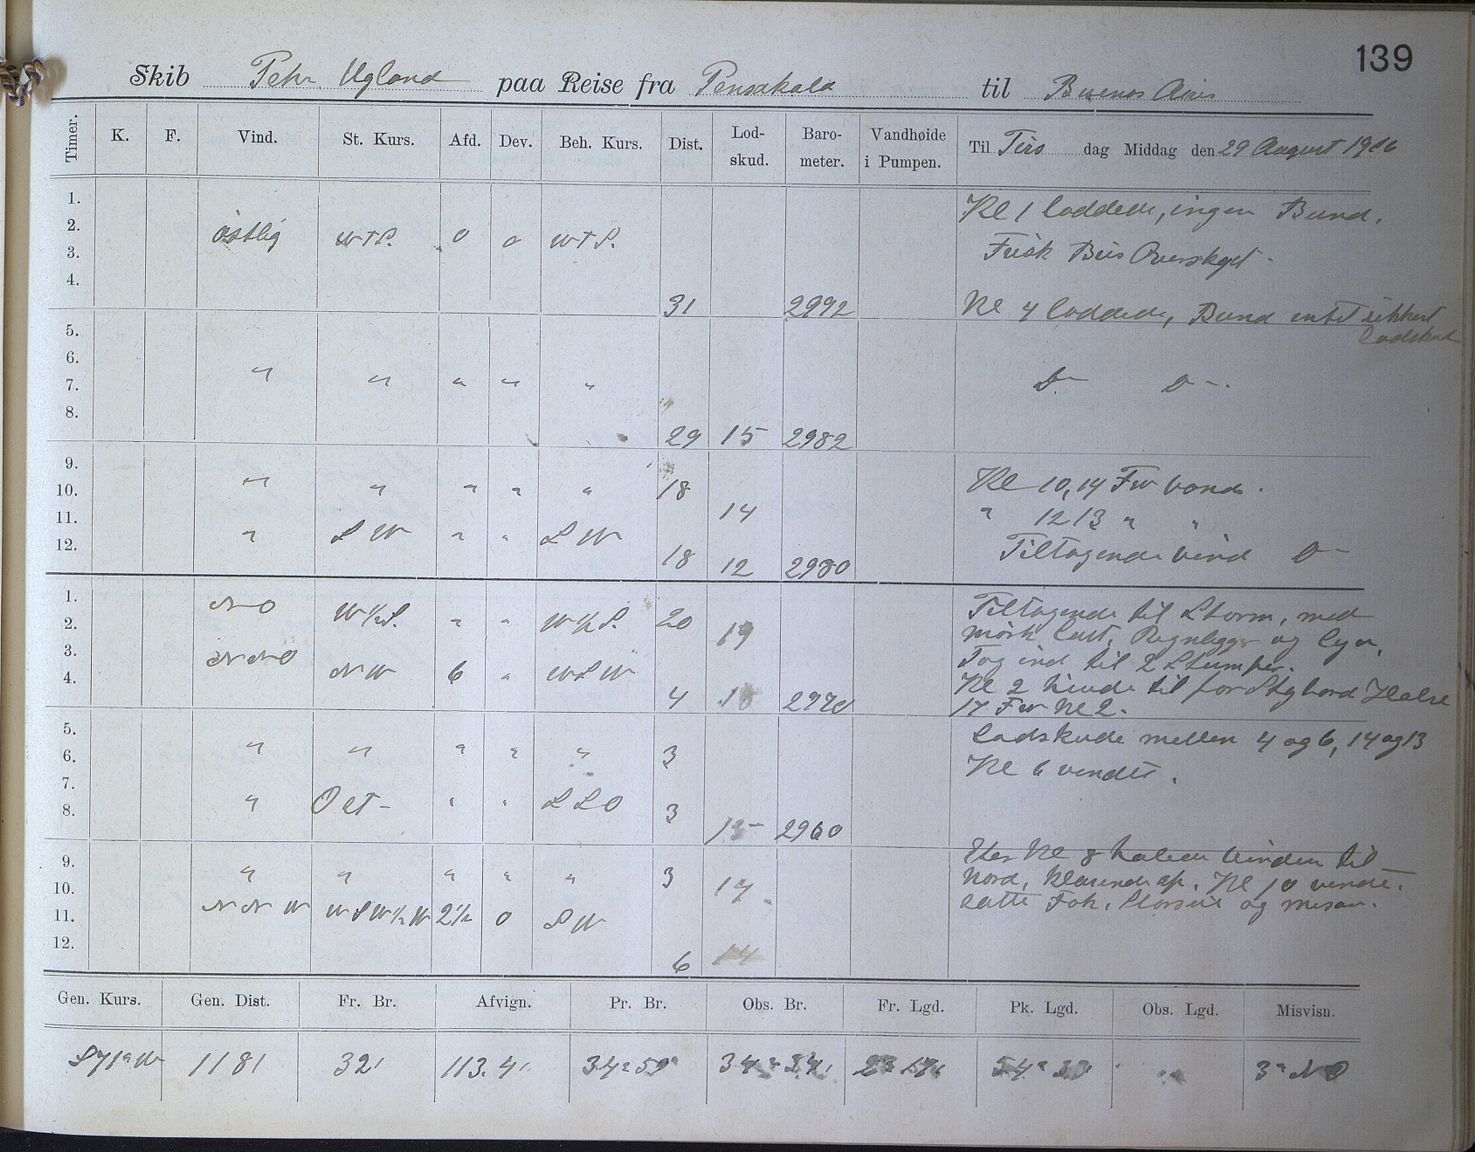 139
Skib Peter Ugland paa Reise fra Pensakola til Buenos Aires
Timer. K. F. Vind. St. Kurs. Afd. Dev. Beh. Kurs. Dist. Lod-skud. Baro-meter. Vandhøide i Pumpen. Til Tirs dag Middag den 29 August 1916
1. Kl 1 loddede, ingen Bund.
2. østlig WTS. 0 0 WTS.
3. Frisk Bris Overskyet.
4. 31 2992 Kl 4 loddede, Bund intet sikkert Lodskud
5.
6.
7. " " " " " Do Do
8. 29 15 2982
9.
10. " " " " " 18 14 Kl 10, 14 Fv vand.
11. " 12 13 " "
12. " SW " " SW 18 12 2980 Tiltagende vind Do
1. NO W½S. " " W½S. 20 Tiltagende til Storm, med
2. 19 mørk Luft, Regnbyger og Lyn.
3. NNO NW 6 " WSW Tog ind til 2 Stumper.
4. 4 18 2970 Kl 2 til for Styrbord Halse
17 Fv Kl 2.
5. " " " " " 3 Lodskude mellem 4 og 6, 14 og 13
6. Kl 6 vendt.
7.
8. " Ost " " SSO 3 13 2960
9. " " " " " 3 17 Efter Kl 8 Vinden til
10. Nord, Klarende op. Kl 10 vendte.
11. NNW WSW½W 2½ 0 SW satte Fok, Storseil og mesan.
12. 6 14
Gen. Kurs. Gen. Dist. Fr. Br. Afvign. Pr. Br. Obs. Br. Fr. Lgd. Pk. Lgd. Obs. Lgd. Misvisn.
S71°W 118' 32' 113.4' 34°59' 34°34' 54° 3° NO